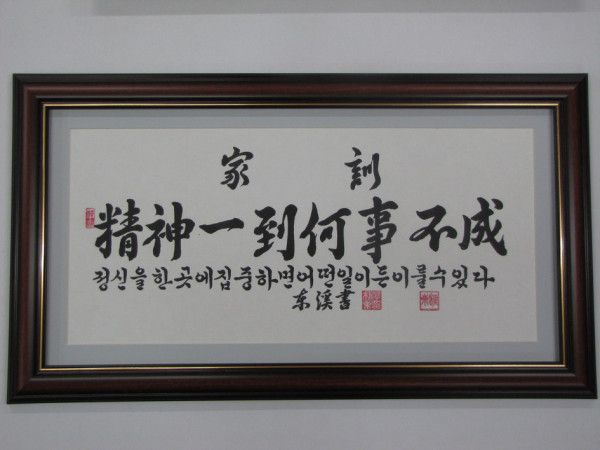 家 訓
精神一到何事不成
정신을한곳에집중하면어떤일이든이룰수있다
东溪書